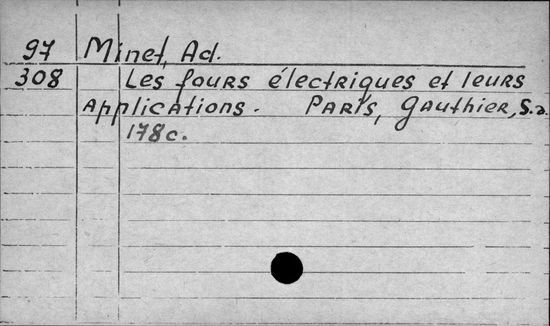 97 Minet, Ad.
308 Les fours électriques et leurs
applications. Paris, Gauthier, S.a.
178c.